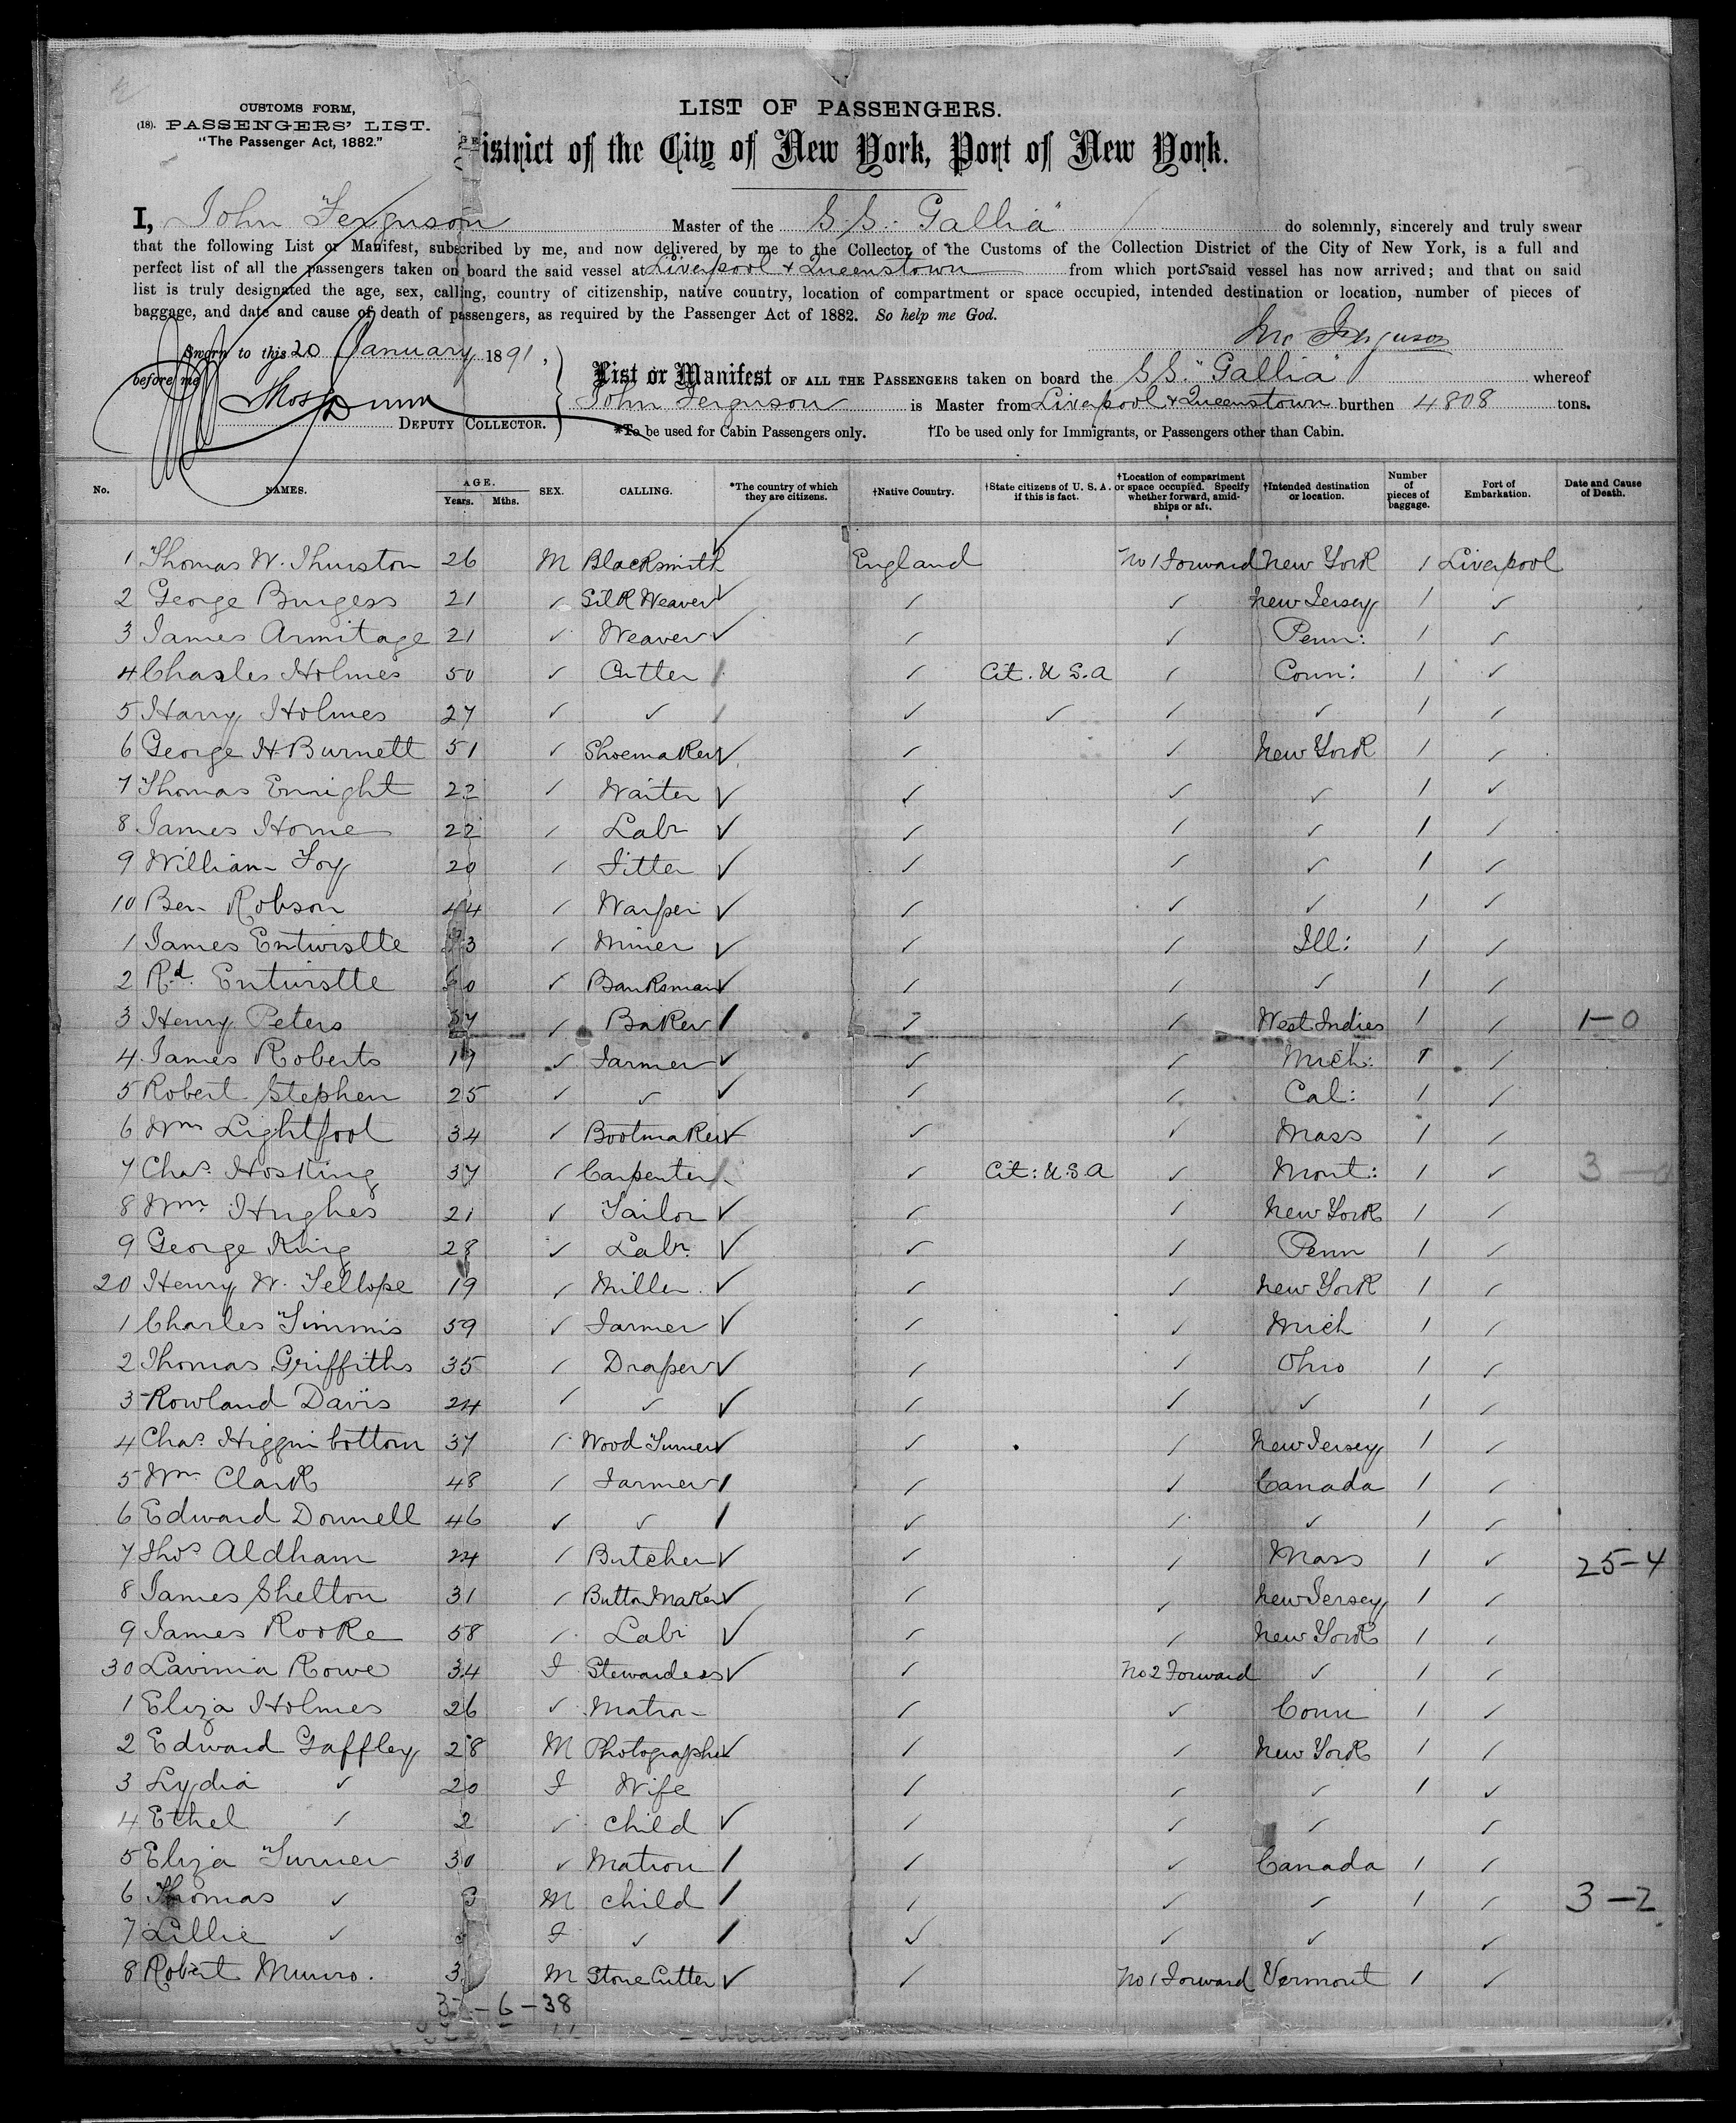 CUSTOMS FORM,
(18). PASSENGERS' LIST.
"The Passenger Act, 1882."
LIST OF PASSENGERS.
istrict of the City of New York, Port of New York.
I, John Ferguson Master of the S.S. Gallia" do solemnly, sincerely and truly swear
that the following List or Manifest, subscribed by me, and now delivered by me to the Collector of the Customs of the Collection District of the City of New York, is a full and
perfect list of all the passengers taken on board the said vessel at Liverpool & Queenstown from which ports said vessel has now arrived; and that on said
list is truly designated the age, sex, calling, country of citizenship, native country, location of compartment or space occupied, intended destination or location, number of pieces of
baggage, and date and cause of death of passengers, as required by the Passenger Act of 1882. So help me God.
Jno Ferguson
Sworn to this 20 January 1891,
before me
Thos Dunn
DEPUTY COLLECTOR.
List or Manifest OF ALL THE PASSENGERS taken on board the S.S. "Gallia" whereof
John Ferguson is Master from Liverpool & Queenstown burthen 4808 tons.
*To be used for Cabin Passengers only. †To be used only for Immigrants, or Passengers other than Cabin.
No. NAMES. AGE. Years. Mths. SEX. CALLING. *The country of which they are citizens. †Native Country. †State citizens of U. S. A. if this is fact. †Location of compartment or space occupied. Specify whether forward, amidships or aft. †Intended destination or location. Number of pieces of baggage. Port of Embarkation. Date and Cause of Death.
1 Thomas W. Thurston 26 M Blacksmith England No 1 Forward New York 1 Liverpool
2 George Burgess 21 ✓ Silk Weaver ✓ ✓ ✓ New Jersey 1 ✓
3 James Armitage 21 ✓ Weaver ✓ ✓ ✓ Penn: 1 ✓
4 Charles Holmes 50 ✓ Cutler / ✓ Cit. U.S.A ✓ Conn: 1 ✓
5 Harry Holmes 27 ✓ ✓ / ✓ ✓ ✓ ✓ 1 ✓
6 George H. Burnett 51 ✓ Shoemaker ✓ ✓ ✓ New York 1 ✓
7 Thomas Enright 22 ✓ Waiter ✓ ✓ ✓ ✓ 1 ✓
8 James Horne 22 ✓ Labr ✓ ✓ ✓ ✓ 1 ✓
9 William Foy 20 ✓ Fitter ✓ ✓ ✓ ✓ 1 ✓
10 Ben Robson 44 ✓ Warper ✓ ✓ ✓ ✓ 1 ✓
1 James Entwistle ✓ Miner ✓ ✓ ✓ Ill: 1 ✓
2 Rd. Entwistle ✓ Banksman ✓ ✓ ✓ ✓ 1 ✓
3 Henry Peters ✓ Baker / ✓ ✓ West Indies 1 ✓ 1-0
4 James Roberts 19 ✓ Farmer ✓ ✓ ✓ Mich: 1 ✓
5 Robert Stephen 25 ✓ ✓ ✓ ✓ ✓ Cal: 1 ✓
6 Wm Lightfoot 34 ✓ Bootmaker ✓ ✓ ✓ Mass 1 ✓
7 Chas. Hosking 37 ✓ Carpenter / ✓ Cit: U.S.A ✓ Mont: 1 ✓ 3-0
8 Wm. Hughes 21 ✓ Tailor ✓ ✓ ✓ New York 1 ✓
9 George King 28 ✓ Labr. ✓ ✓ ✓ Penn 1 ✓
20 Henry W. Tellope 19 ✓ Miller ✓ ✓ ✓ New York 1 ✓
1 Charles Timmis 59 ✓ Farmer ✓ ✓ ✓ Mich 1 ✓
2 Thomas Griffiths 35 ✓ Draper ✓ ✓ ✓ Ohio 1 ✓
3 Rowland Davis 24 ✓ ✓ ✓ ✓ ✓ ✓ 1 ✓
4 Chas. Higginbottom 37 ✓ Wood Turner ✓ ✓ ✓ New Jersey 1 ✓
5 Wm Clark 48 ✓ Farmer / ✓ ✓ Canada 1 ✓
6 Edward Donnell 46 ✓ ✓ / ✓ ✓ ✓ 1 ✓
7 Thos Aldham 24 ✓ Butcher ✓ ✓ ✓ Mass 1 ✓ 25-4
8 James Shelton 31 ✓ Button Maker ✓ ✓ ✓ New Jersey 1 ✓
9 James Rooke 58 ✓ Labr ✓ ✓ ✓ New York 1 ✓
30 Lavinia Rowe 34 F Stewardess ✓ ✓ No 2 Forward ✓ 1 ✓
1 Eliza Holmes 26 ✓ Matron ✓ ✓ Conn 1 ✓
2 Edward Gaffley 28 M Photographer ✓ ✓ ✓ New York 1 ✓
3 Lydia ✓ 20 F Wife ✓ ✓ ✓ 1 ✓
4 Ethel ✓ 2 ✓ Child ✓ ✓ ✓ ✓ ✓
5 Eliza Turner 30 ✓ Matron / ✓ ✓ Canada 1 ✓
6 Thomas ✓ 3 M Child / ✓ ✓ ✓ 1 ✓ 3-2
7 Lillie ✓ F ✓ / ✓ ✓ ✓ ✓
8 Robert Munro. M Stone Cutter ✓ ✓ No 1 Forward Vermont 1 ✓
- 6 - 38